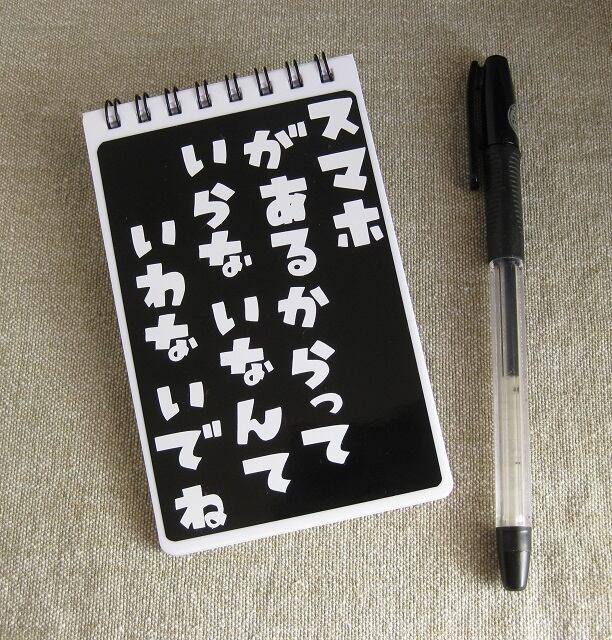 スマホ
があるからって
いらないなんて
いわないでね